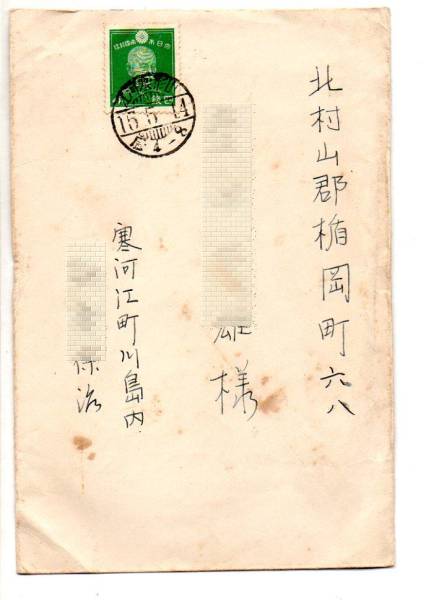 北村山郡楯岡町六八
雄様
寒河江町川島内
保治
大日本帝國郵便
15.5.14
4-8